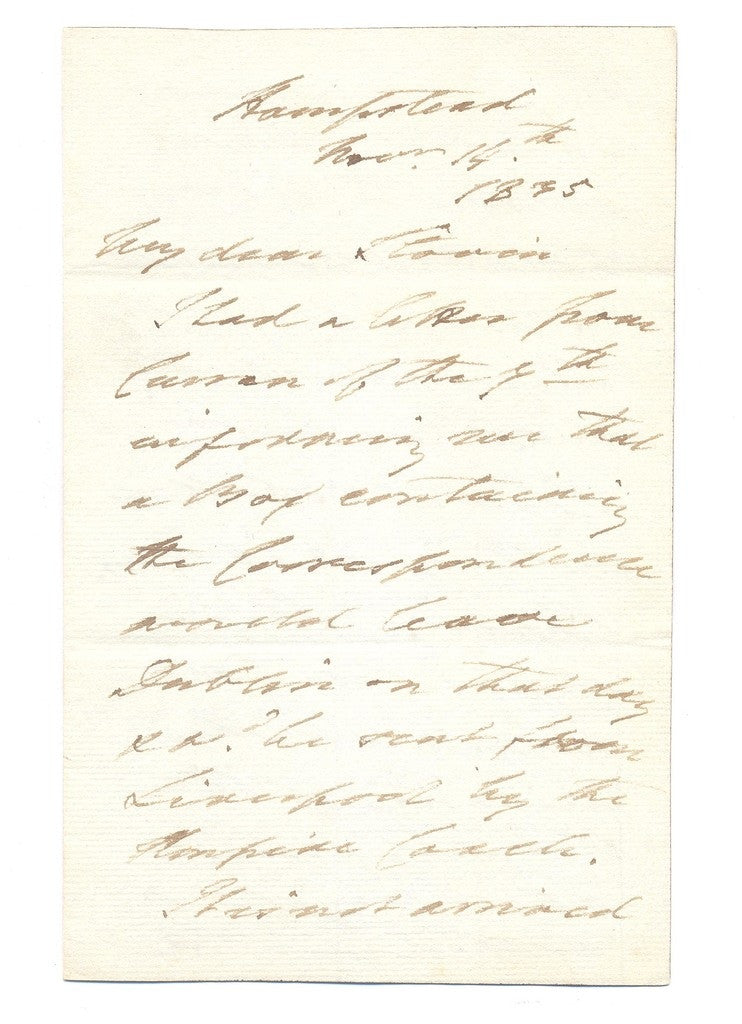 Hampstead
Novr. 14.th
1835
My dear Stovin
I had a letter from
Curran of the 7th
informing me that
a Box containing
the Correspondence
would leave
Dublin on that day
& wd. be sent from
Liverpool by the
Umpire Coach.
It is not arrived